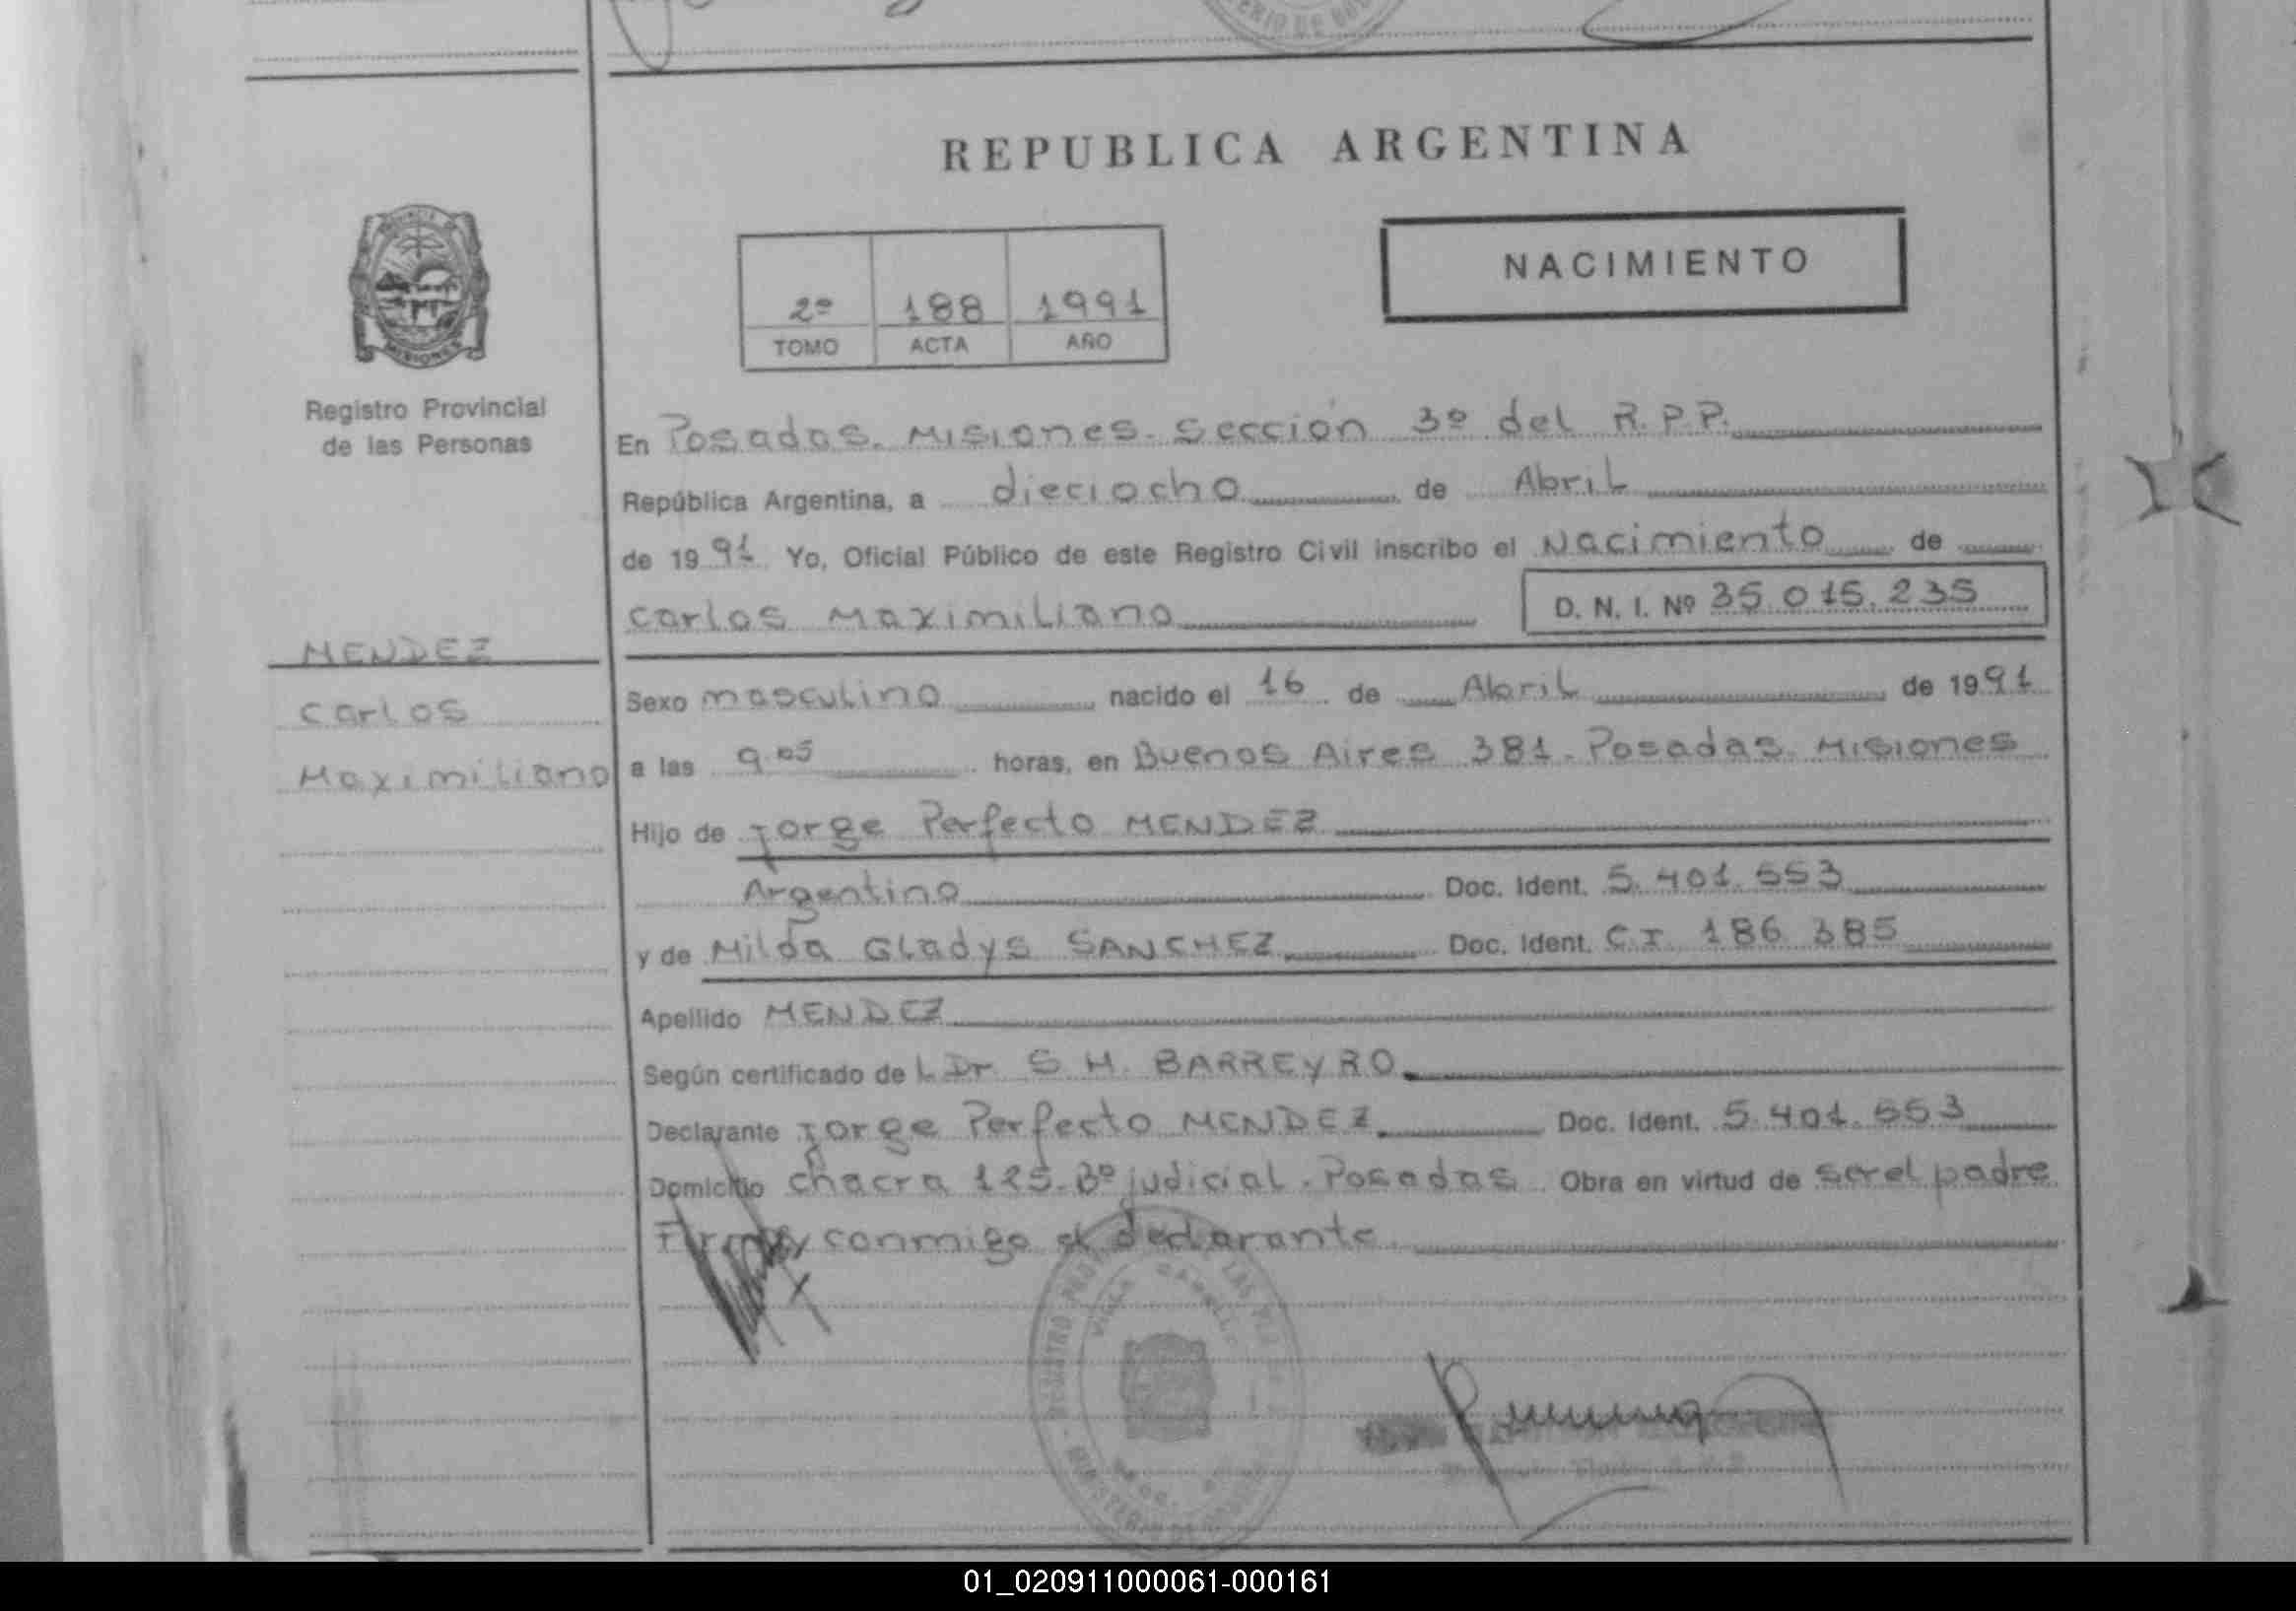 REPUBLICA ARGENTINA
NACIMIENTO
2º 188 1991
TOMO ACTA AÑO
Registro Provincial
de las Personas
MENDEZ
Carlos
Maximiliano
En Posadas. Misiones. Sección 3º del R.P.P.
República Argentina, a dieciocho de Abril
de 1991 Yo, Oficial Público de este Registro Civil inscribo el Nacimiento de
Carlos Maximiliano D. N. I. Nº 35.015.235
Sexo masculino nacido el 16 de Abril de 1991
a las 9.05 horas, en Buenos Aires 381. Posadas. Misiones
Hijo de Jorge Perfecto MENDEZ
Argentino Doc. Ident. 5.401.553
y de Milda Gladys SANCHEZ Doc. Ident. C.I 186 385
Apellido MENDEZ
Según certificado de L Dr S H. BARREYRO
Declarante Jorge Perfecto MENDEZ Doc. Ident. 5.401.553
Domicilio chacra 125. Bº judicial. Posadas Obra en virtud de ser el padre
Firma conmigo el declarante
MISIONES
01_020911000061-000161